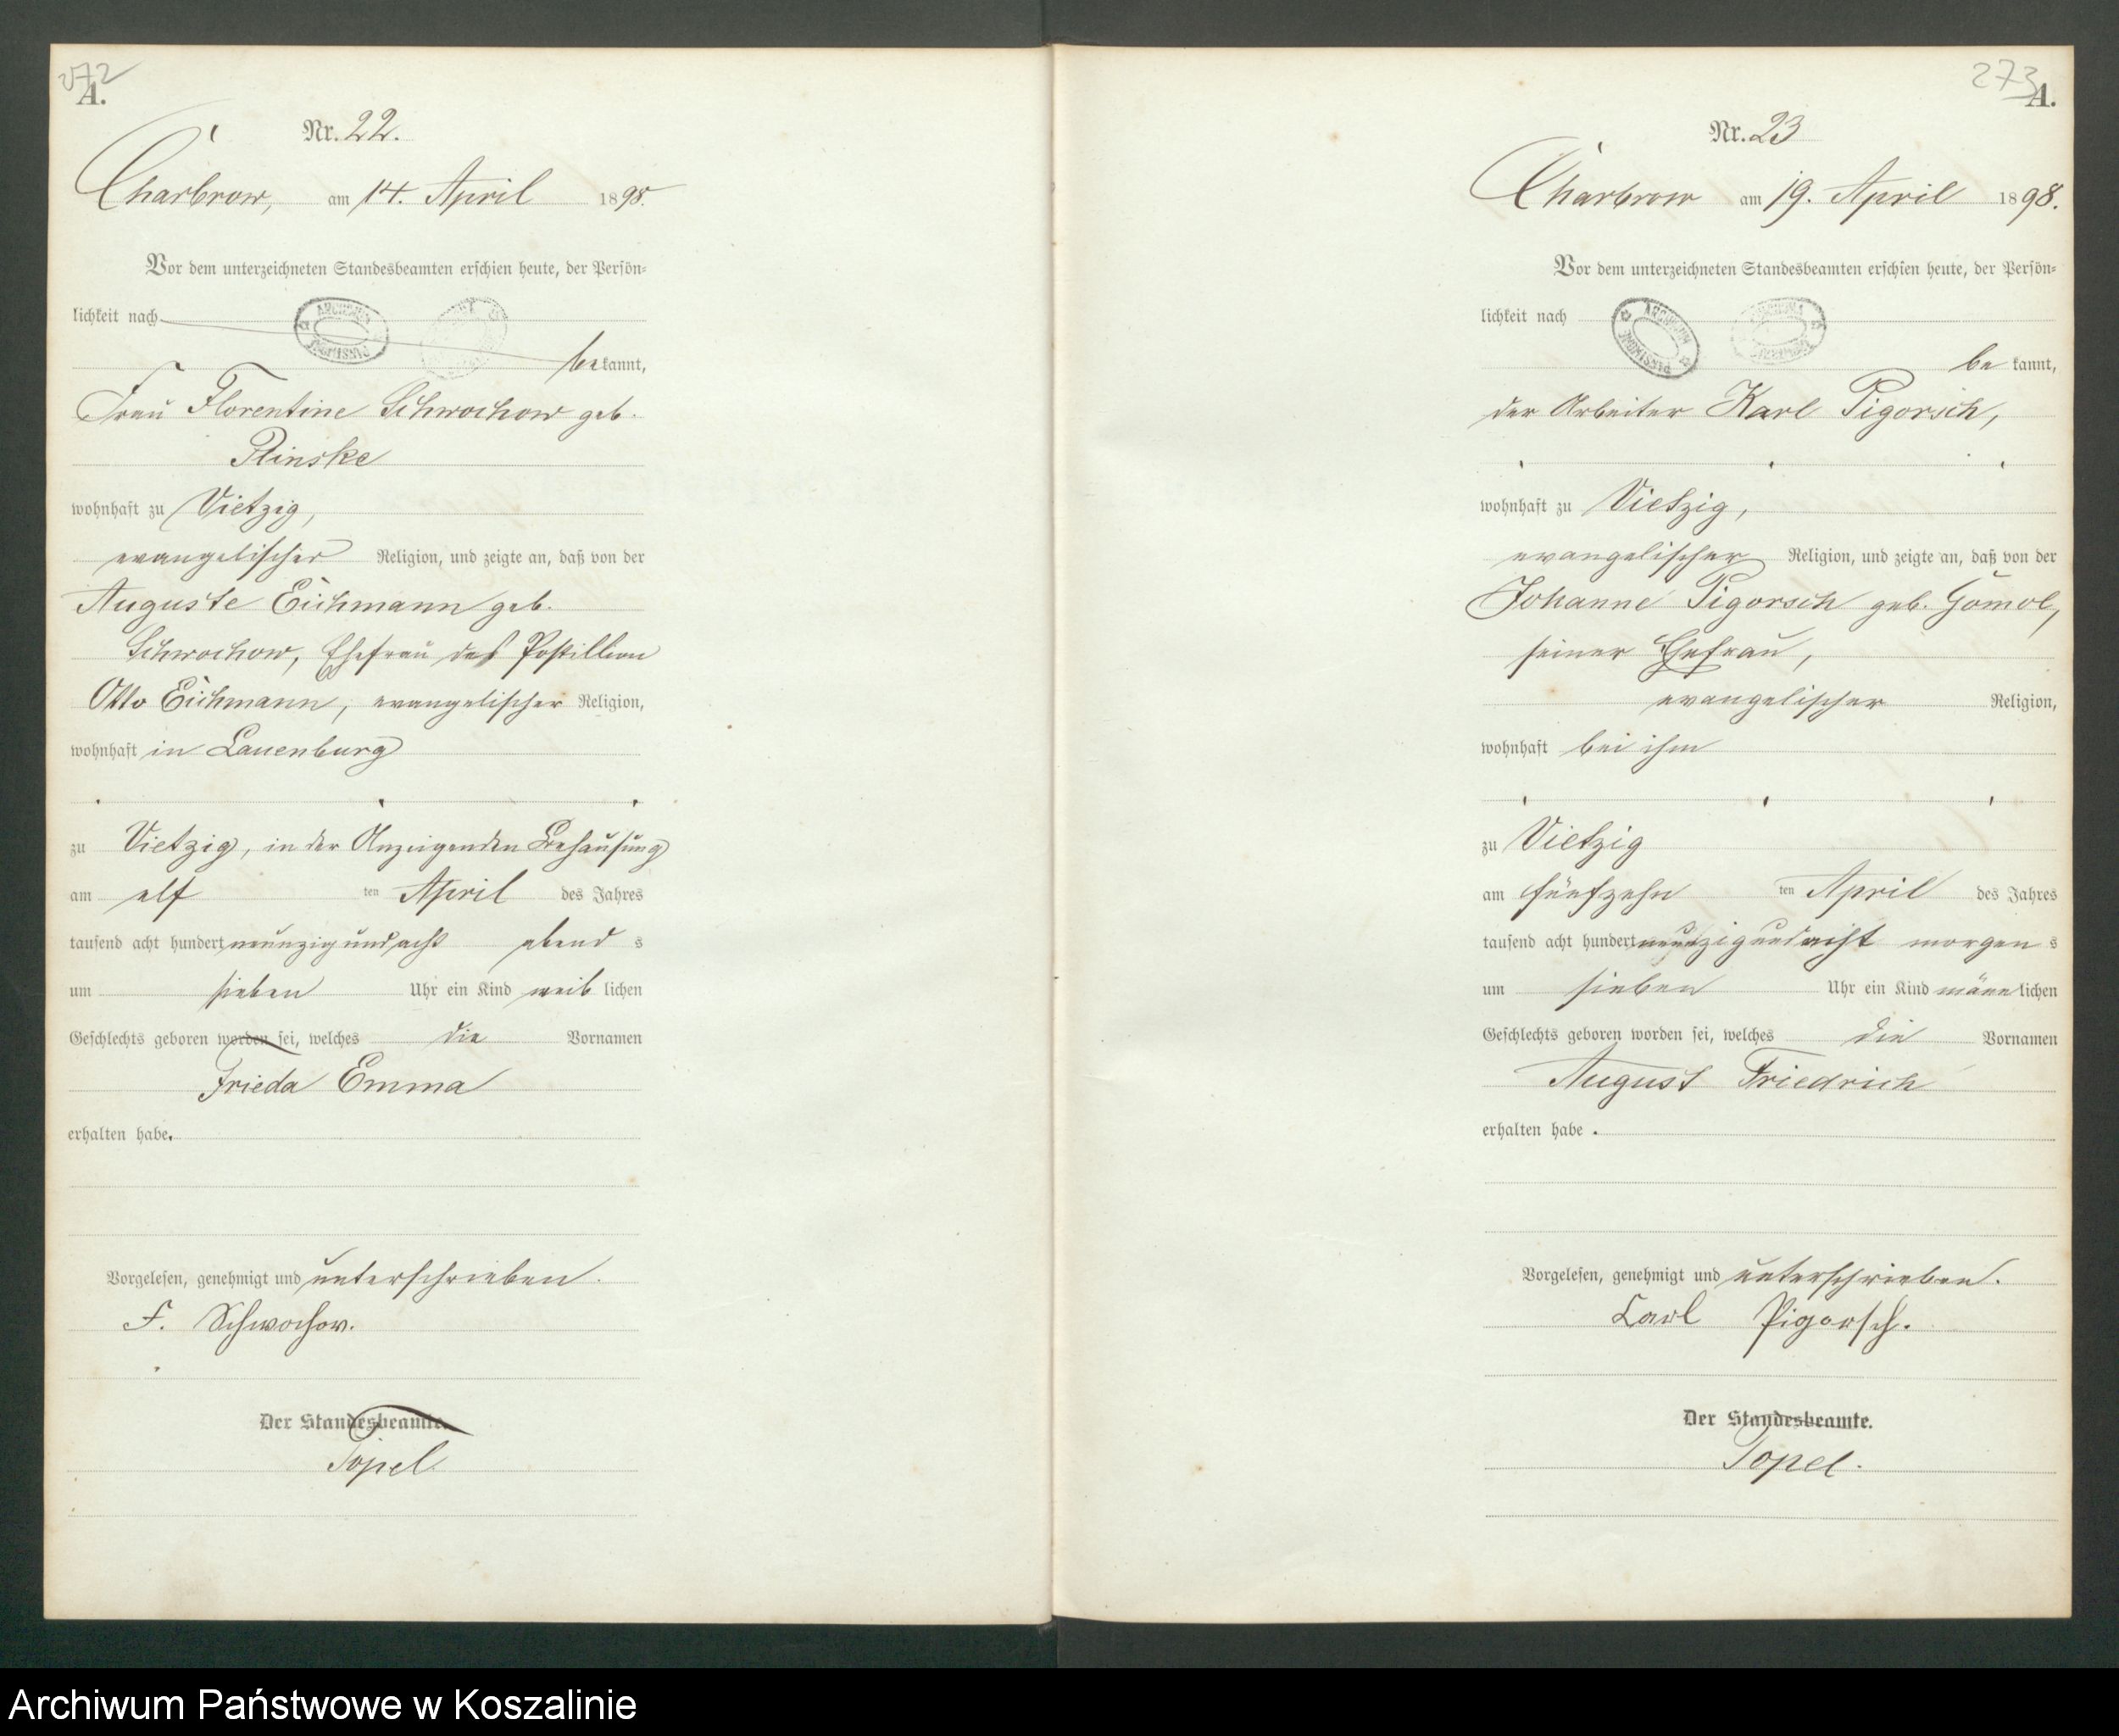 272
A.
Nr. 22.
Charbrow, am 14. April 1898.
Vor dem unterzeichneten Standesbeamten erschien heute, der Persön-
lichkeit nach
bekannt,
Frau Florentine Schwochow geb.
Plinske
wohnhaft zu Vietzig,
evangelischer Religion, und zeigte an, daß von der
Auguste Eichmann geb.
Schwochow, Ehefrau des Postillion
Otto Eichmann, evangelischer Religion,
wohnhaft in Lauenburg
zu Vietzig, in der Anzeigenden Behausung
am elf ten April des Jahres
tausend acht hundert neunzig und acht abend s
um sieben Uhr ein Kind weib lichen
Geschlechts geboren worden sei, welches die Vornamen
Frieda Emma
erhalten habe.
Vorgelesen, genehmigt und unterschrieben.
F. Schwochow.
Der Standesbeamte.
Topel
273
A.
Nr. 23
Charbrow am 19. April 1898.
Vor dem unterzeichneten Standesbeamten erschien heute, der Persön-
lichkeit nach
be kannt,
der Arbeiter Karl Pigorsch,
wohnhaft zu Vietzig,
evangelischer Religion, und zeigte an, daß von der
Johanne Pigorsch geb. Gomol,
seiner Ehefrau,
evangelischer Religion,
wohnhaft bei ihm
zu Vietzig
am fünfzehn ten April des Jahres
tausend acht hundert neunzig und acht morgen s
um sieben Uhr ein Kind männ lichen
Geschlechts geboren worden sei, welches die Vornamen
August Friedrich
erhalten habe .
Vorgelesen, genehmigt und unterschrieben.
Carl Pigorsch.
Der Standesbeamte.
Topel.
Archiwum Państwowe w Koszalinie